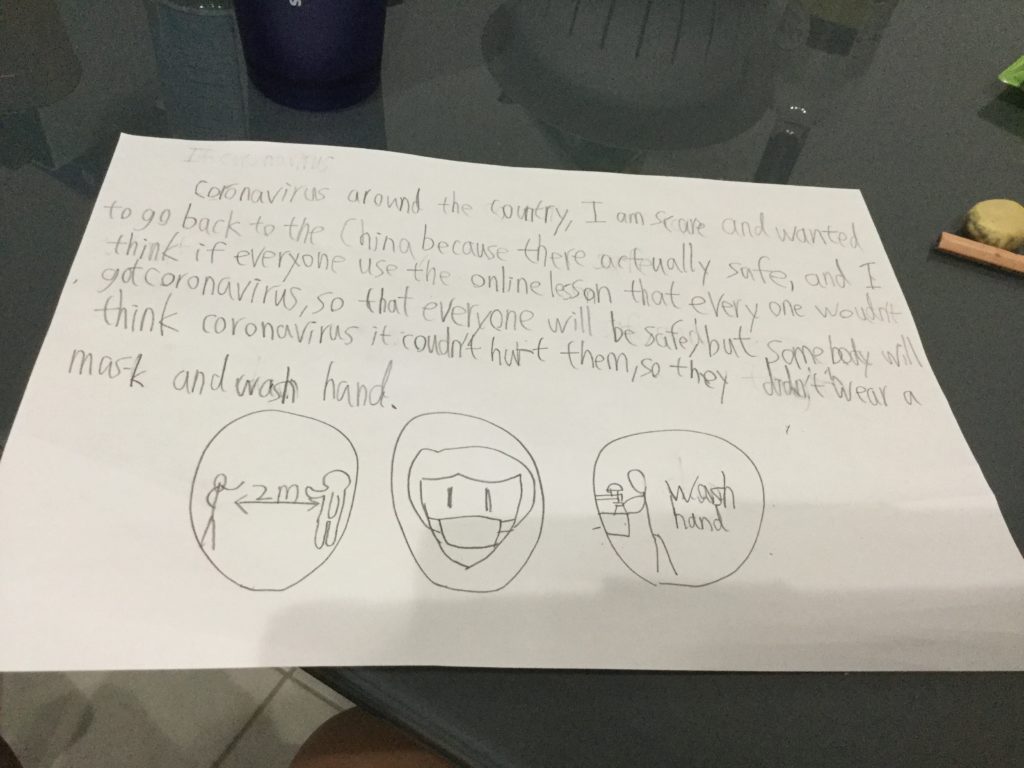 coronavirus around the country, I am scare and wanted
to go back to the China because there actually safe, and I
think if everyone use the online lesson that every one woudn't
got coronavirus, so that everyone will be safe, but somebody will
think coronavirus it coudn't hurt them, so they don't wear a
mask and wash hand.
2m
wash
hand